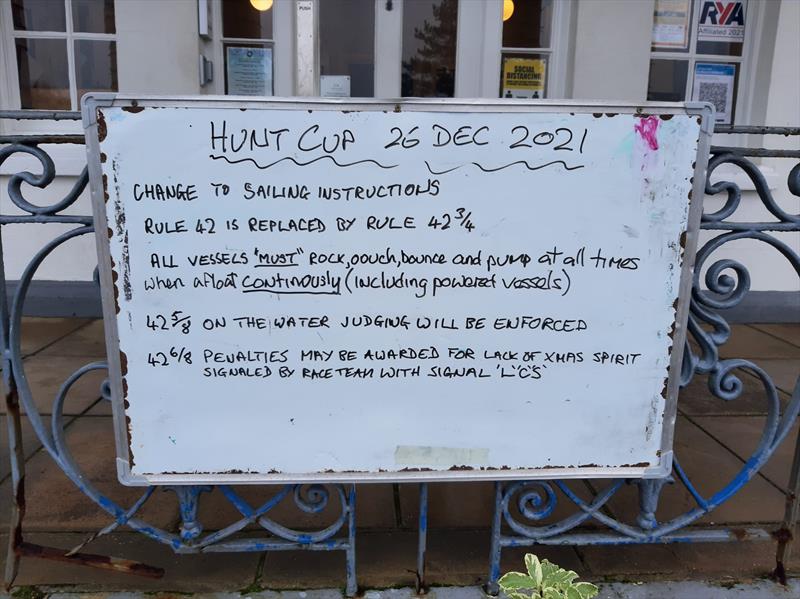 PUSH
RYA
Affiliated 2021
SOCIAL
DISTANCING
HUNT CUP 26 DEC 2021
CHANGE TO SAILING INSTRUCTIONS
RULE 42 IS REPLACED BY RULE 42 3/4
ALL VESSELS "MUST" ROCK, oouch, bounce and pump at all times
when afloat CONTINOUSLY (including powered vessels)
42 5/8 ON THE WATER JUDGING WILL BE ENFORCED
42 6/8 PENALTIES MAY BE AWARDED FOR LACK OF XMAS SPIRIT
SIGNALED BY RACE TEAM WITH SIGNAL 'L''C'S'